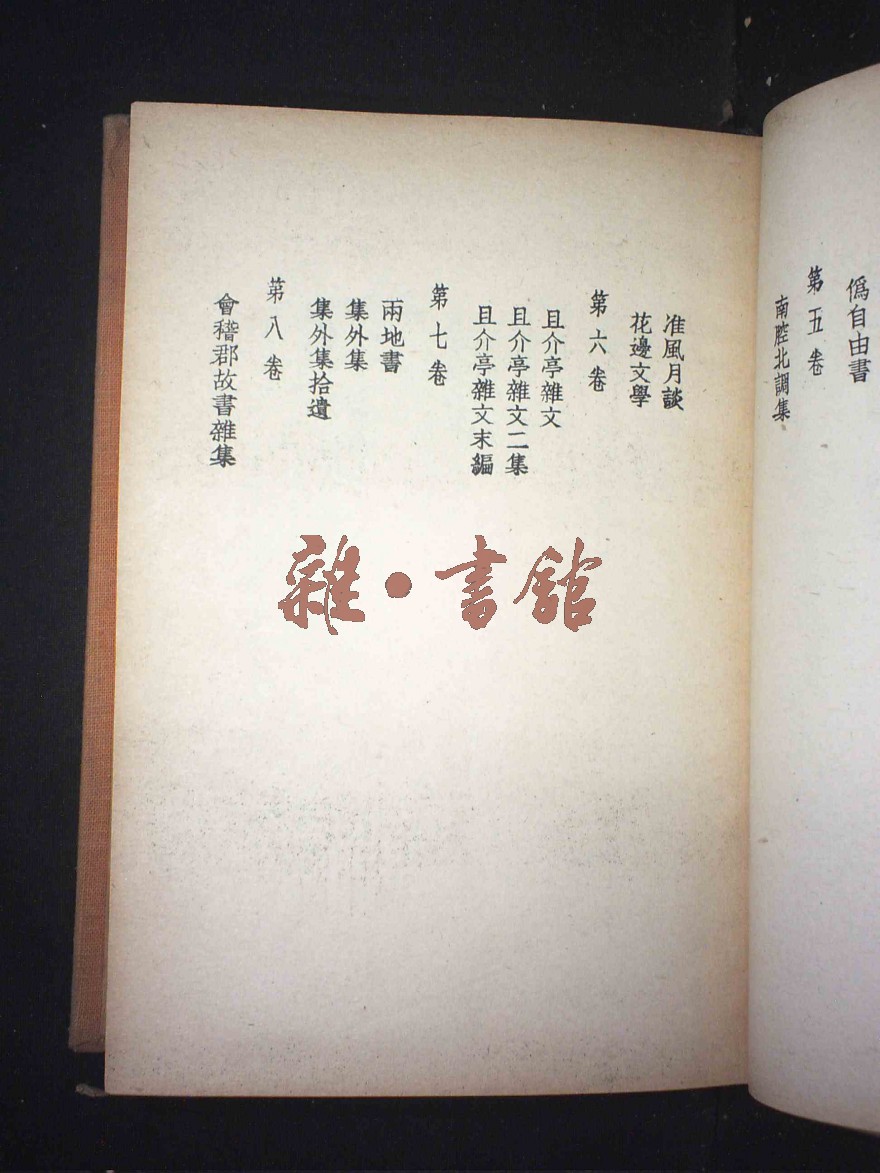 僞自由書
第五卷
南腔北調集
准風月談
花邊文學
第六卷
且介亭雜文
且介亭雜文二集
且介亭雜文末編
第七卷
兩地書
集外集
集外集拾遺
第八卷
會稽郡故書雜集
雜·書館